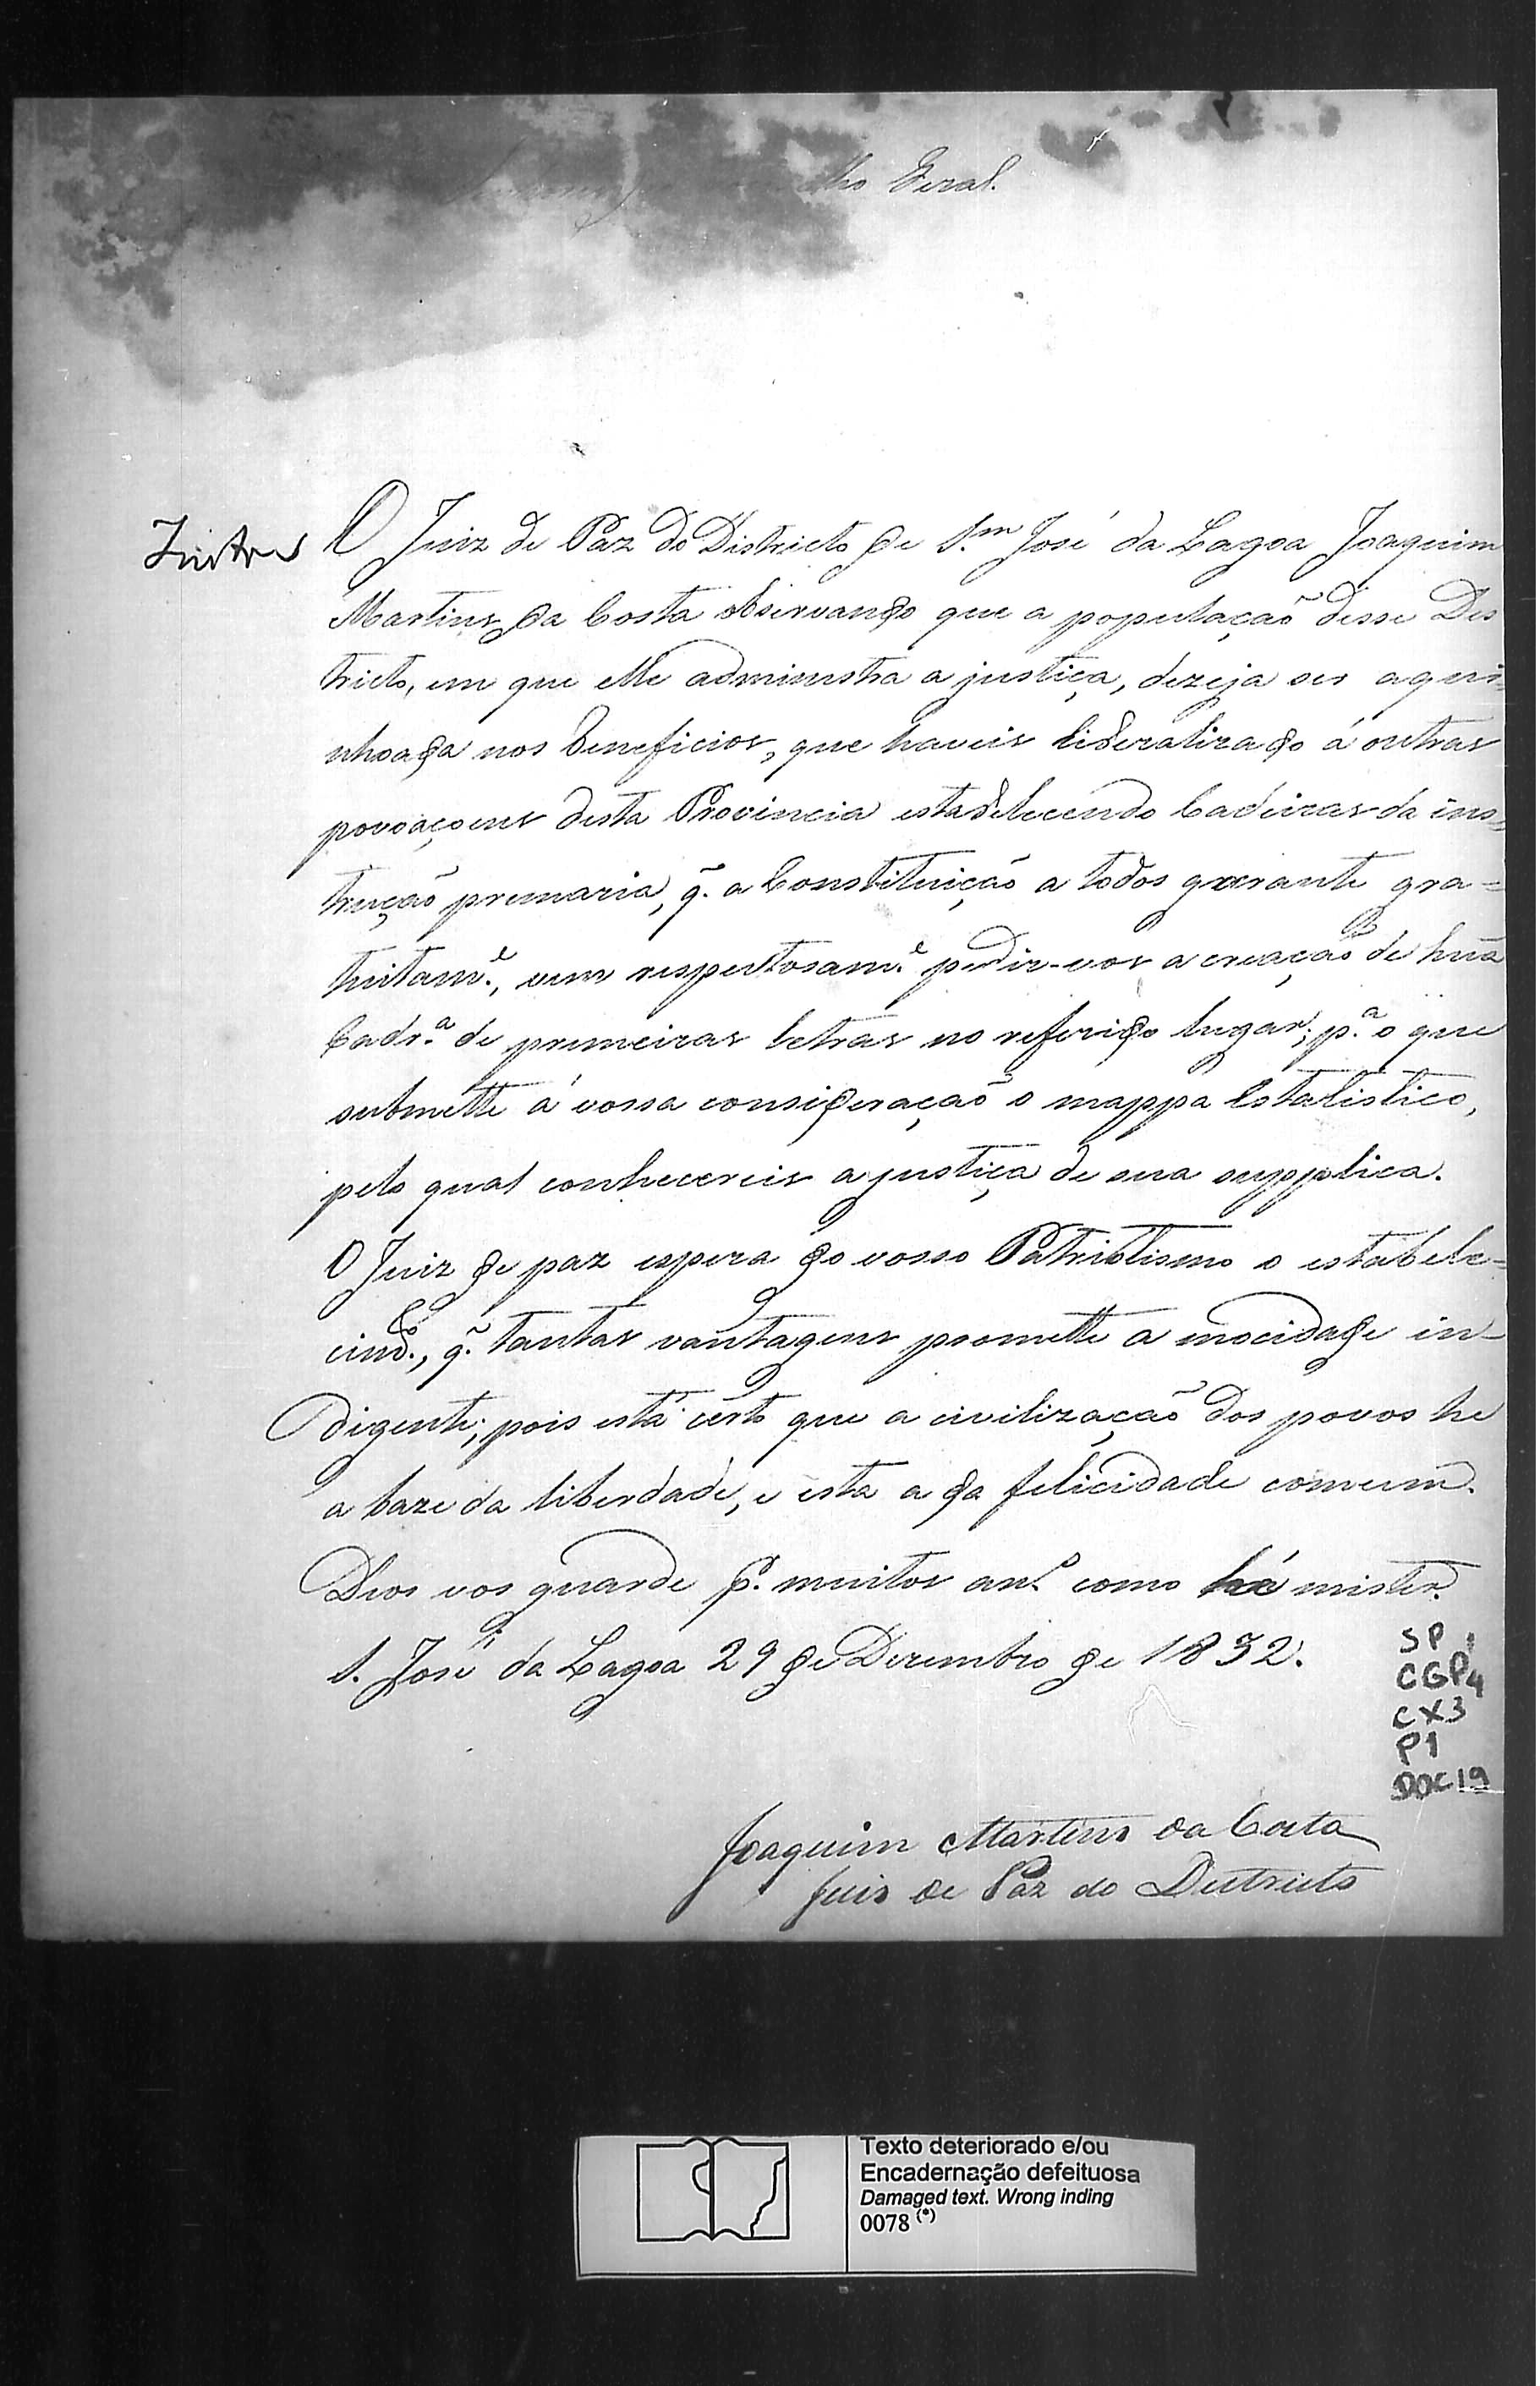 lho Geral.
O Juiz de Paz do Districto de S.m José da Lagoa Joaquim
Martins da Costa observando que a população desse Des
tricto, em que elle administra a justiça, dezeja ser aqui-
nhoada nos beneficios, que haveis liberalizado á outras
povoaçoens desta Provincia estabelecendo Cadeiras da ins-
trução premaria, q̃. a Constituição a todos garante gra-
tuitam.e, vem respeitosam.e pedir-vos a creação de huã
Cadr.a de primeiras letras no referido lugar; p.a o que
submette á vossa consideração o mappa Estatistico,
pelo qual conhecereis a justiça de sua supplica.
O Juiz de paz espera do vosso Patriotismo o estabele-
cim.to, q̃. tantas vantagens promette a mocidade in-
digente; pois está certo que a civilização dos povos he
a baze da liberdade, e esta a da felicidade comum.
Deos vos guarde p. muitos an.s como há mister.
S. José da Lagoa 29 de Dezembro de 1832.
SP
CGP4
CX3
P1
DOC19
Joaquim Martins da Costa
Juis de Paz do Destricto
Texto deteriorado e/ou
Encadernação defeituosa
Damaged text. Wrong inding
0078 (*)